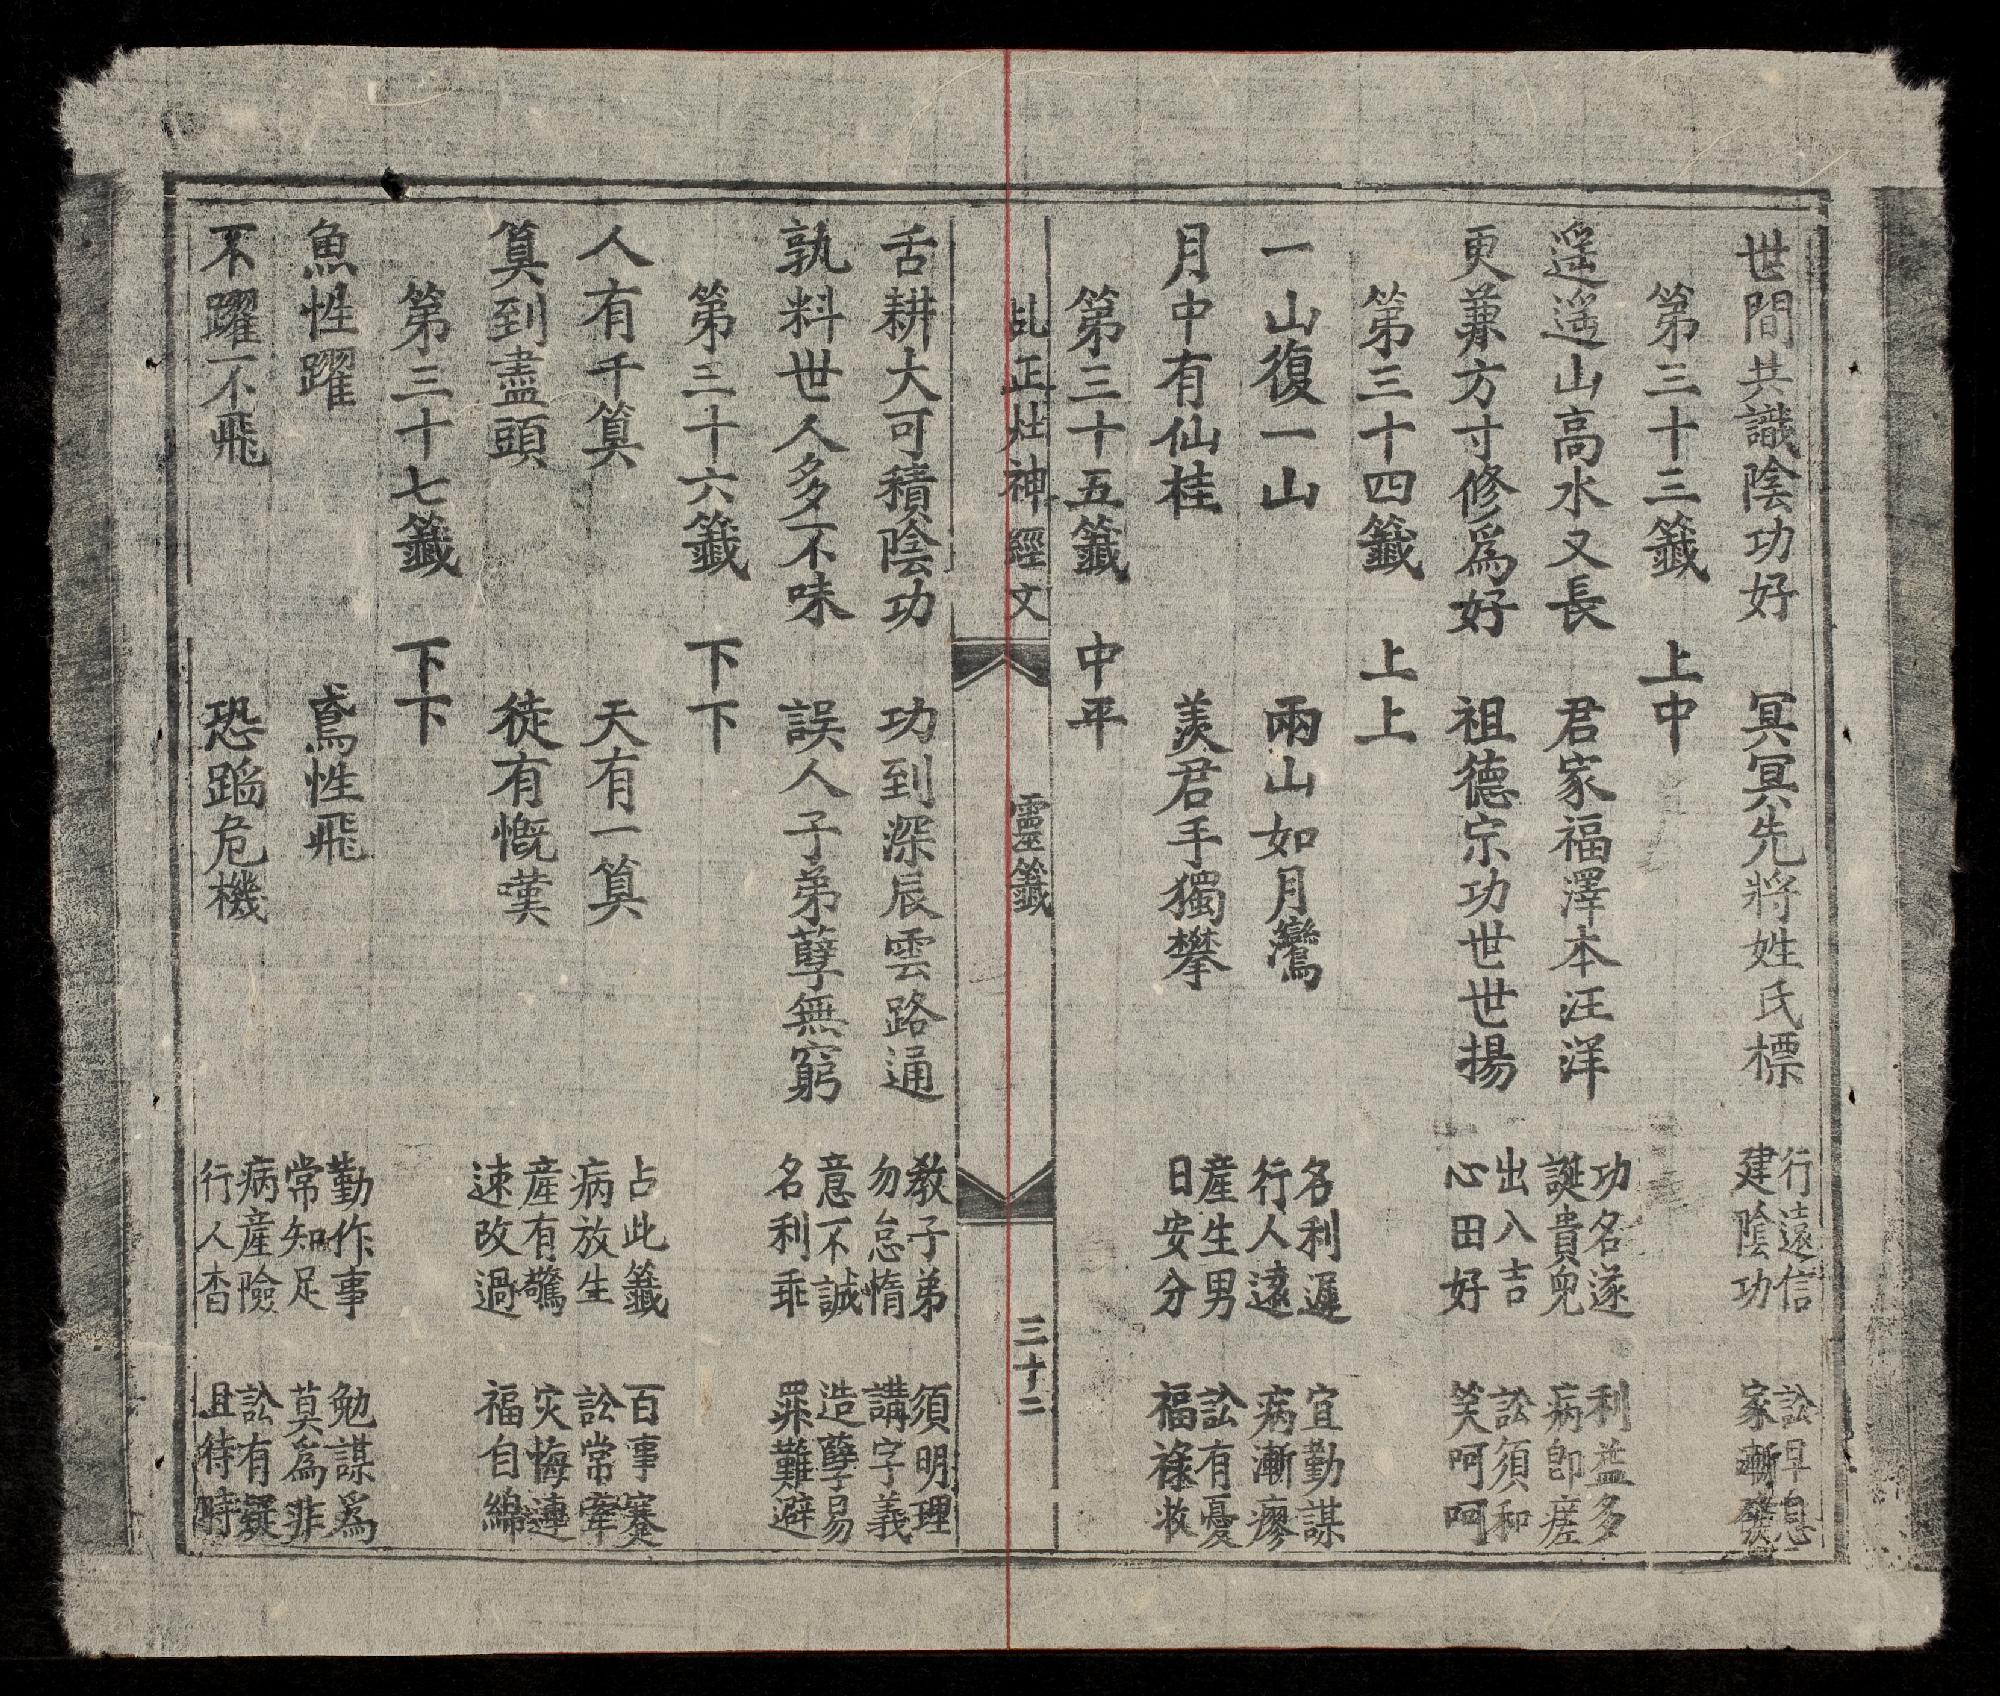 世間共識陰功好　冥冥先將姓氏標　行遠信　訟早息
建陰功　家漸發
第三十三籤　上中
遥遥山高水又長　君家福澤本汪洋　功名遂　利益多
誕貴兒　病即瘥
更兼方寸修爲好　祖德宗功世世揚　出入吉　訟須和
心田好　笑呵呵
第三十四籤　上上
一山復一山　兩山如月彎　名利遲　宜勤謀
行人遠　病漸瘳
月中有仙桂　羨君手獨攀　産生男　訟有憂
日安分　福祿攸
第三十五籤　中平
乩正灶神經文　靈籤　三十二
舌耕大可積陰功　功到深辰雲路通　教子弟　須明理
勿怠惰　講字義
孰料世人多不味　誤人子弟孽無窮　意不誠　造孽易
名利乖　罪難避
第三十六籤　下下
人有千算　天有一算　占此籤　百事蹇
病放生　訟常牽
算到盡頭　徒有慨嘆　産有驚　灾悔連
速改過　福自綿
第三十七籤　下下
魚性躍　鳶性飛　勤作事　勉謀爲
常知足　莫爲非
不躍不飛　恐蹈危機　病産險　訟有疑
行人杳　且待時